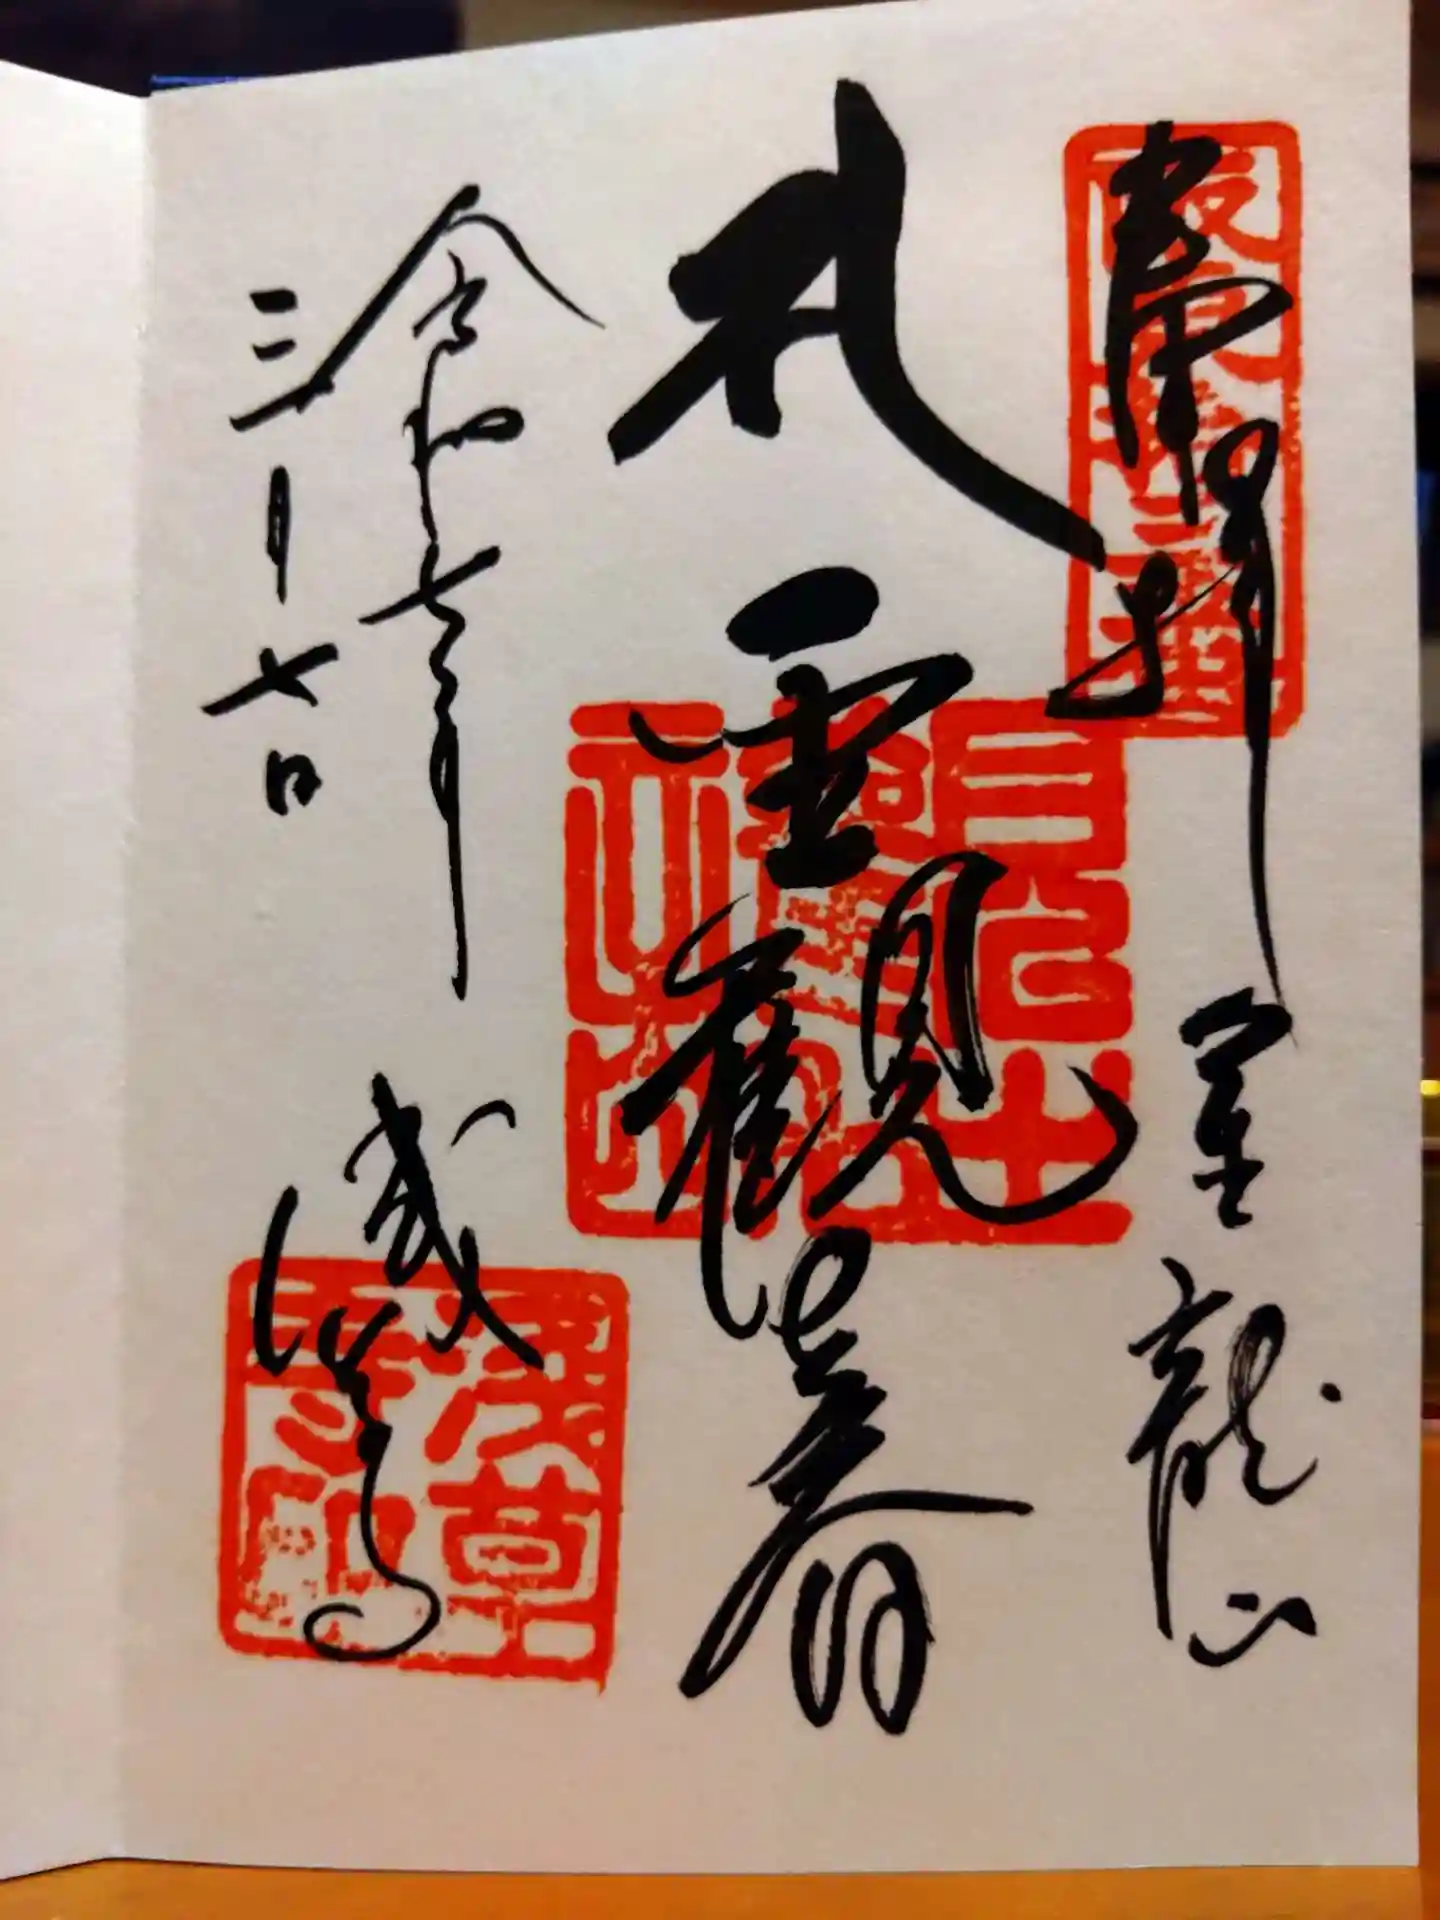 坂東拾三番
奉拝 金龍山
聖観世音
令和七年
三月七日
浅草寺
浅草寺印